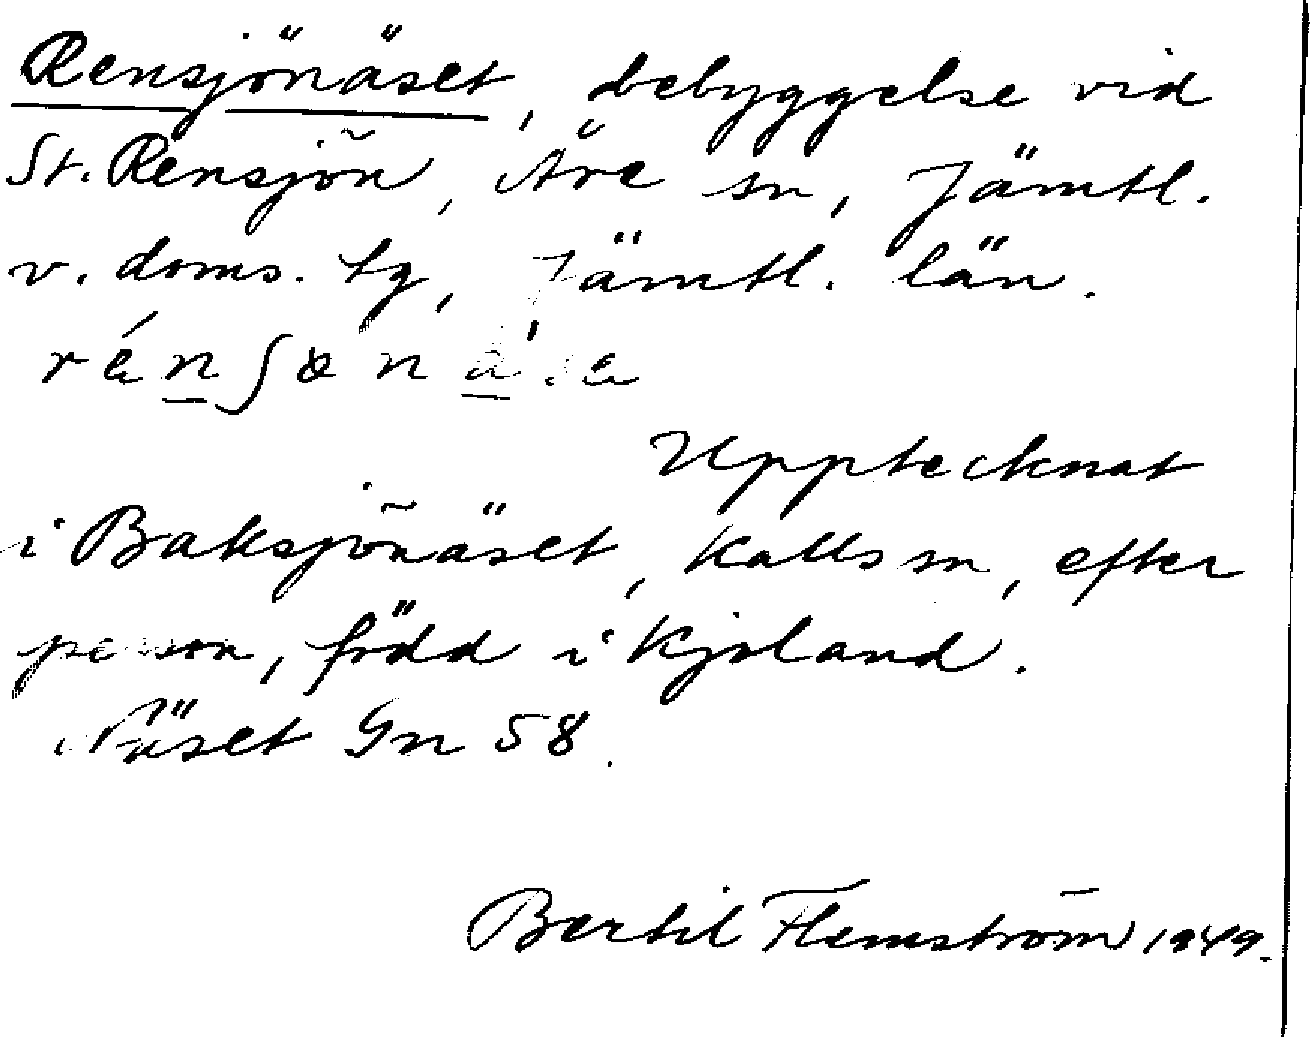 Rensjönäset, bebyggelse vid
St. Rensjön, Åre sn, Jämtl.
v. doms. tg, Jämtl. län.
Upptecknat
i Baksjönäset, Kalls sn, efter
person, född i Kjoland.
Näset Gn 58.
Bertil Flemström 1949.